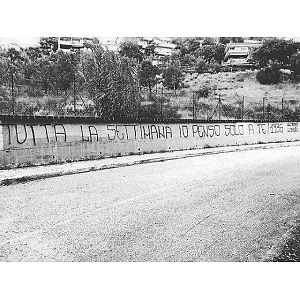 TUTTA LA SETTIMANA IO PENSO SOLO A TE